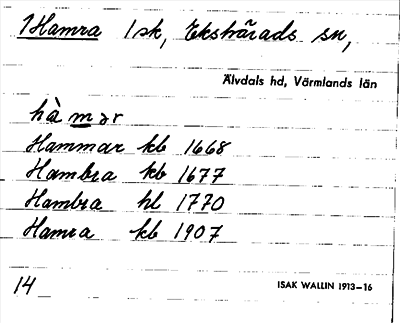 1Hamra 1sk, Ekshärads sn,
Älvdals hd, Värmlands län
hàmər
Hammar kb 1668
Hambra kb 1677
Hambra hl 1770
Hamra kb 1907
14 ISAK WALLIN 1913–16